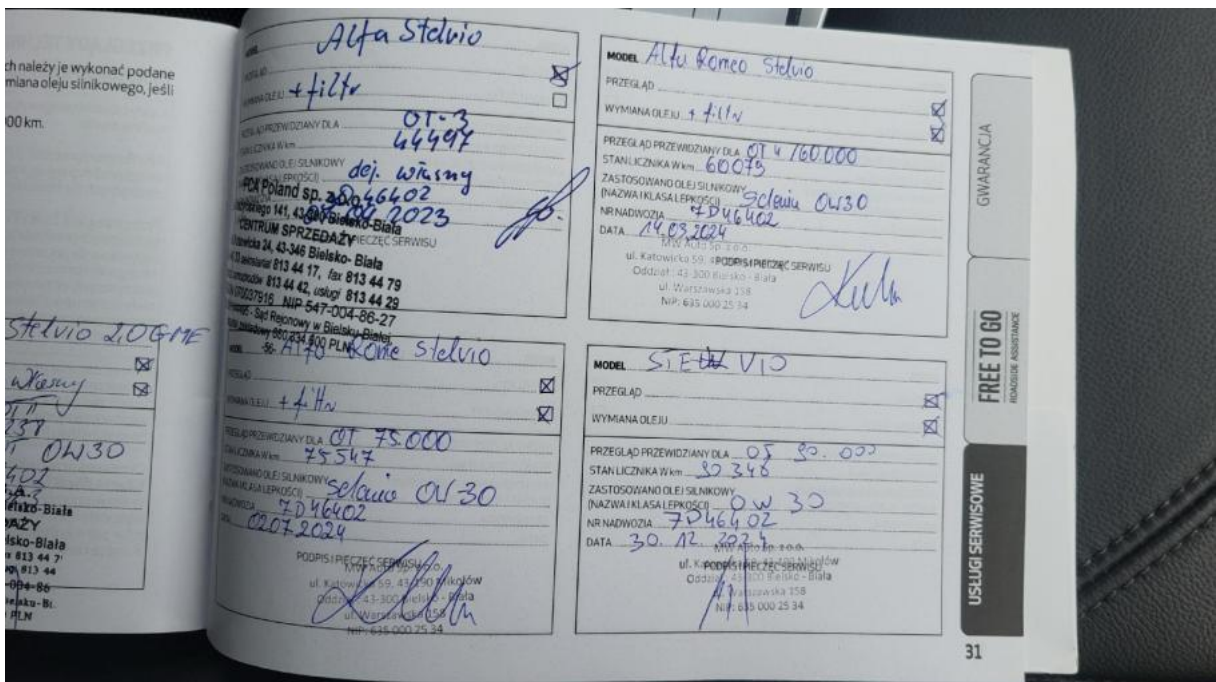 ch należy je wykonać podane
miana oleju silnikowego, jeśli
00 km.
Stelvio 2.0 GME
własny
237
0W30
402
Bielsko-Biała
DAŻY
elsko-Biała
813 44 7
813 44
-004-86
PLN
MODEL Alfa Stelvio
WYMIANA OLEJU + filtr
PRZEGLĄD PRZEWIDZIANY DLA OT-3
STAN LICZNIKA W km 44497
ZASTOSOWANO OLEJ SILNIKOWY
dej. własny
7D46402
04 2023
FCA Poland sp. z o.o.
141, 43-300 Bielsko-Biała
CENTRUM SPRZEDAŻY
PIECZĘĆ SERWISU
24, 43-346 Bielsko- Biała
813 44 17, fax 813 44 79
813 44 42, usługi 813 44 29
NIP 547-004-86-27
Sąd Rejonowy w Bielsku-Białej
PLN
-56-
MODEL Alfa Rome Stelvio
PRZEGLĄD
WYMIANA OLEJU + filtr
PRZEGLĄD PRZEWIDZIANY DLA OT 75.000
STAN LICZNIKA W km 75547
ZASTOSOWANO OLEJ SILNIKOWY
(NAZWA I KLASA LEPKOŚCI) Selenia 0W30
NR NADWOZIA 7D46402
DATA 02.07.2024
PODPIS I PIECZĘĆ SERWISU
MW Auto Sp. z o.o.
ul. Katowicka 59, 43-190 Mikołów
Oddział: 43-300 Bielsko - Biała
ul. Warszawska 158
NIP: 635 000 25 34
MODEL Alfa Romeo Stelvio
PRZEGLĄD
WYMIANA OLEJU + filtr
PRZEGLĄD PRZEWIDZIANY DLA OT 4 /60.000
STAN LICZNIKA W km 60073
ZASTOSOWANO OLEJ SILNIKOWY
(NAZWA I KLASA LEPKOŚCI) Selenia 0W30
NR NADWOZIA 7D46402
DATA 14.03.2024
MW Auto Sp. z o.o.
ul. Katowicka 59, 4
PODPIS I PIECZĘĆ SERWISU
Oddział: 43-300 Bielsko - Biała
ul. Warszawska 158
NIP: 635 000 25 34
MODEL STELVIO
PRZEGLĄD
WYMIANA OLEJU
PRZEGLĄD PRZEWIDZIANY DLA OT 90.000
STAN LICZNIKA W km 90346
ZASTOSOWANO OLEJ SILNIKOWY
(NAZWA I KLASA LEPKOŚCI) 0W30
NR NADWOZIA 7D46402
DATA 30.12.2024
MW Auto Sp. z o.o.
PODPIS I PIECZĘĆ SERWISU
43-190 Mikołów
Oddział: 43-300 Bielsko - Biała
ul. Warszawska 158
NIP: 635 000 25 34
GWARANCJA
FREE TO GO
ROADSIDE ASSISTANCE
USŁUGI SERWISOWE
31